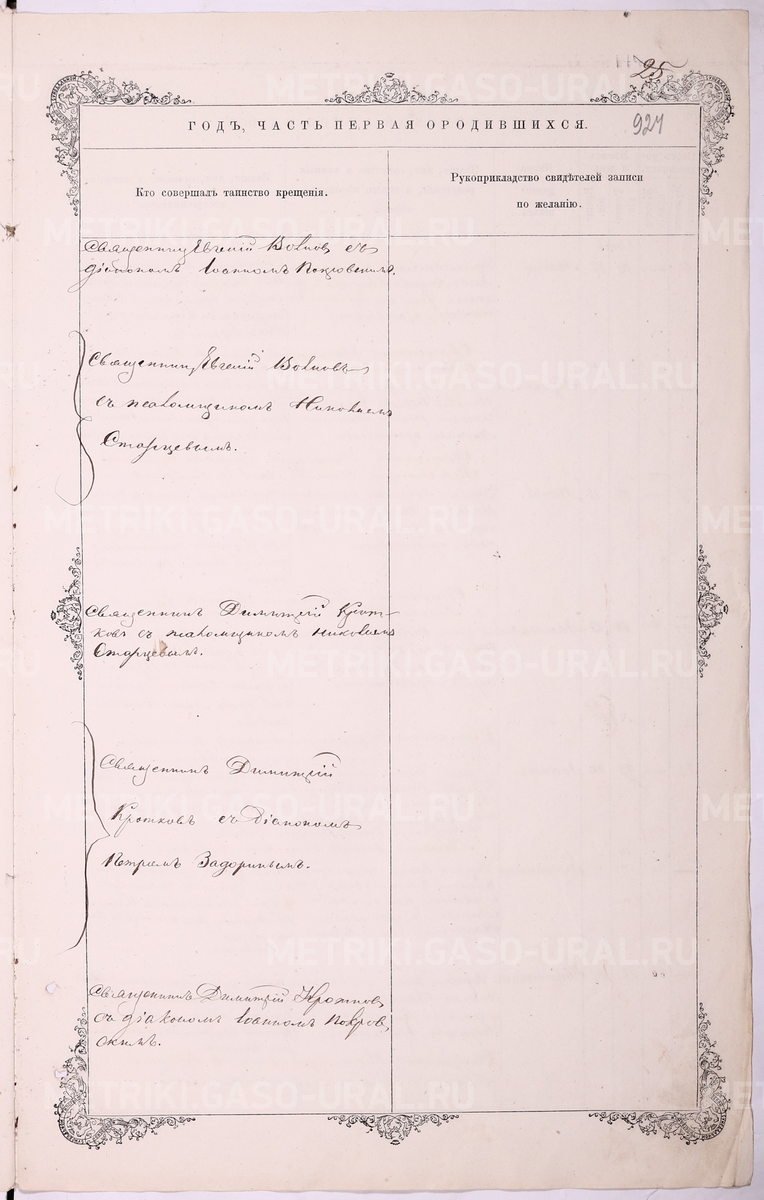 25
924
ГОДЪ, ЧАСТЬ ПЕРВАЯ О РОДИВШИХСЯ.
Кто совершалъ таинство крещенія.
Рукоприкладство свидѣтелей записи
по желанію.
Священникъ Евгеній съ
діакономъ Іоанномъ Покровскимъ.
Священникъ Евгеній
съ псаломщикомъ Николаемъ
Старцевымъ.
Священникъ Димитрій Крот-
ковъ съ псаломщикомъ Николаемъ
Старцевымъ.
Священникъ Димитрій
Кротковъ съ діакономъ
Петромъ Задоринымъ.
Священникъ Димитрій Кротковъ
съ діакономъ Іоанномъ Покров,
скимъ.
METRIKI.GASO-URAL.RU